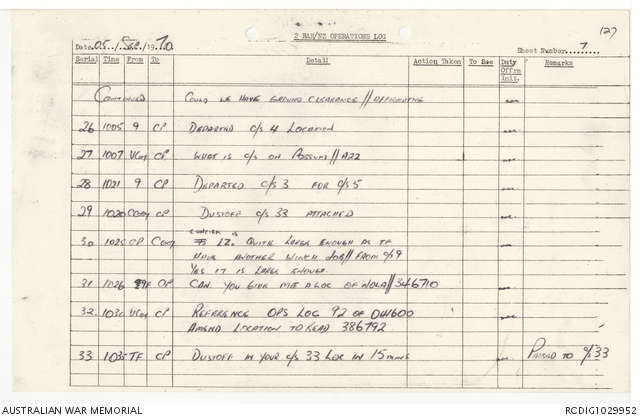 127
2 RAR/NZ OPERATIONS LOG
Date 05 / Sep / 1970
Sheet Number 7
Serial Time From To Detail Action Taken To See Duty Offrs Init. Remarks
CONTINUED COULD WE HAVE GROUND CLEARANCE // AFFIRMATIVE
26 1005 9 CP DEPARTED C/S 4 LOCATION
27 1007 CP WHAT IS C/S ON POSSUM // A22
28 1021 9 CP DEPARTED C/S 3 FOR C/S 5
29 1020 COOY CP DUSTOFF C/S 33 ATTACHED
30 1025 CP COOY IS LZ. QUITE LARGE ENOUGH AS TF
HAVE ANOTHER WINCH JOB // FROM C/S 9
YES IT IS LARGE ENOUGH
31 1026 CP CAN YOU GIVE ME A LOC OF NOLA // 346710
32 1030 CP REFERENCE OPS LOG 92 OF 041600
AMEND LOCATION TO READ 386792
33 1035 TF CP DUSTOFF IN YOUR C/S 33 LOC IN 15 MINS PASSED TO C/S 33
AUSTRALIAN WAR MEMORIAL
RCDIG1029952